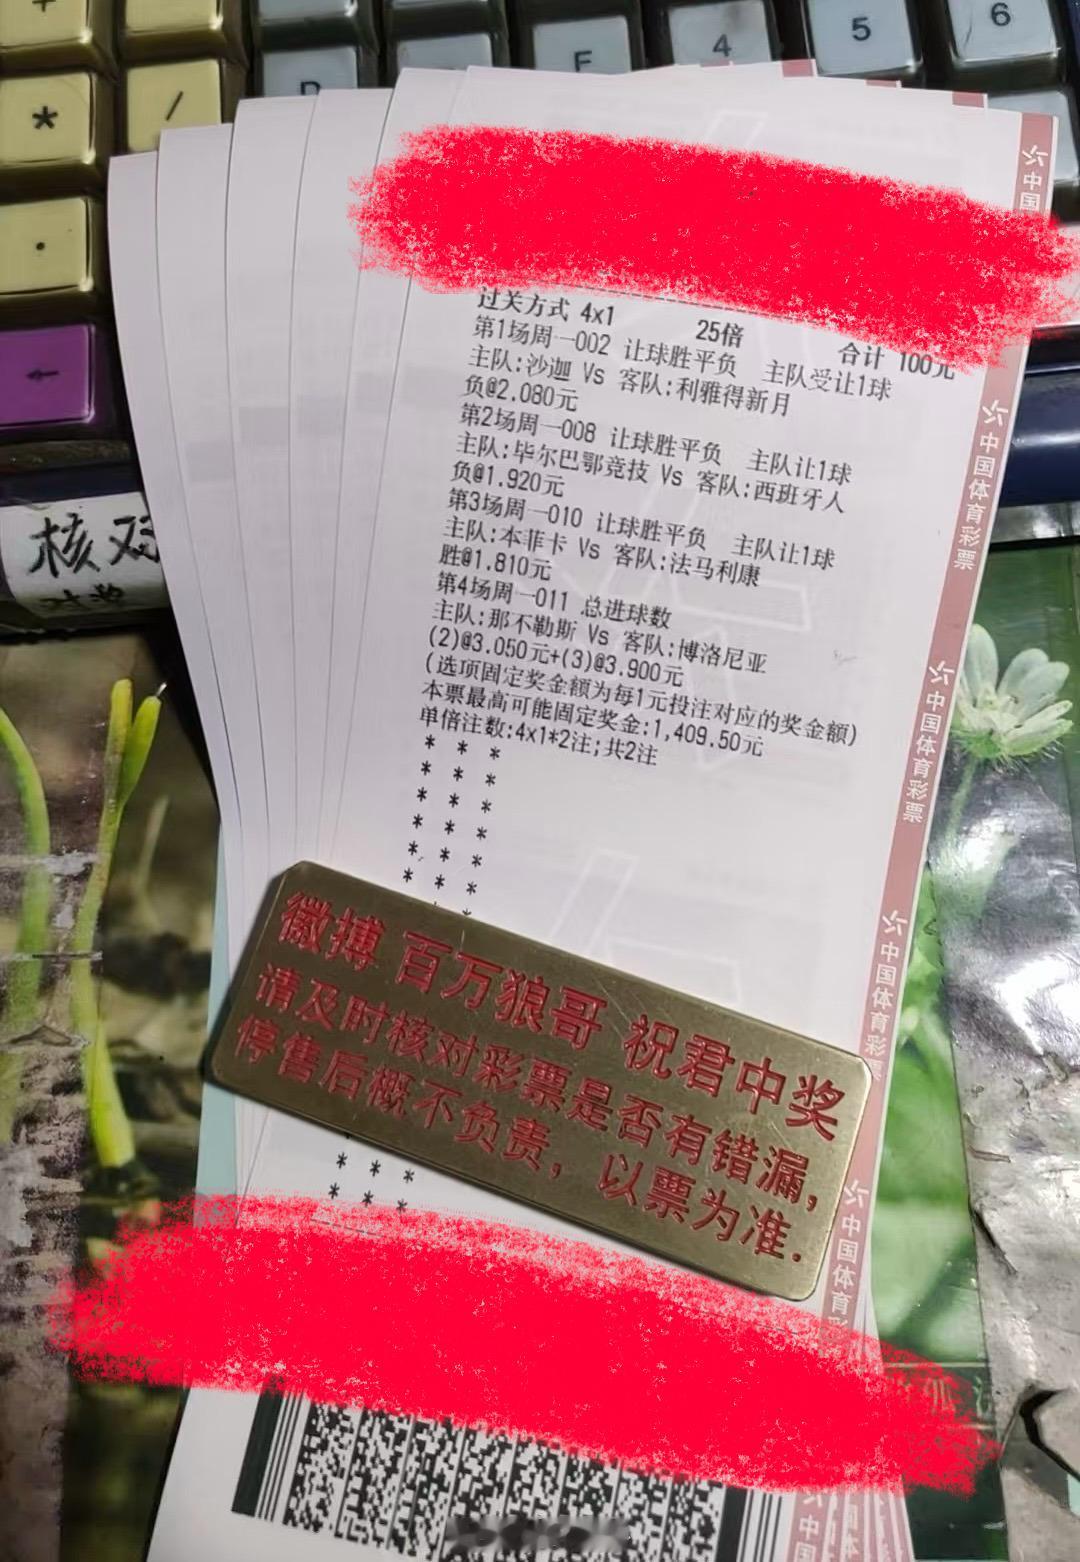 +
*
/
.
←
4
5
6
核对
对奖
过关方式 4x1 25倍 合计 100元
第1场周一002 让球胜平负 主队受让1球
主队:沙迦 Vs 客队:利雅得新月
负@2.080元
第2场周一008 让球胜平负 主队让1球
主队:毕尔巴鄂竞技 Vs 客队:西班牙人
负@1.920元
第3场周一010 让球胜平负 主队让1球
主队:本菲卡 Vs 客队:法马利康
胜@1.810元
第4场周一011 总进球数
主队:那不勒斯 Vs 客队:博洛尼亚
(2)@3.050元+(3)@3.900元
(选项固定奖金额为每1元投注对应的奖金额)
本票最高可能固定奖金:1,409.50元
单倍注数:4x1*2注;共2注
* * *
* * *
* * *
* * *
* * *
* * *
微搏 百万狼哥 祝君中奖
请及时核对彩票是否有错漏,
停售后概不负责, 以票为准.
* * *
* * *
中国
中国体育彩票
中国体育彩票
中国体育彩票
中国体育彩
中国